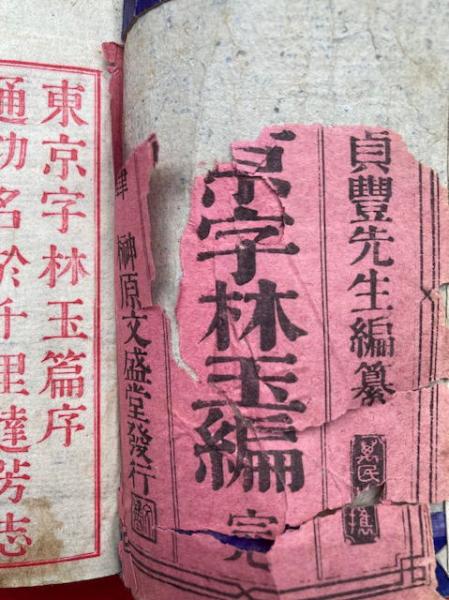 貞豐先生編纂
京字林玉編
完
榊原文盛堂發行
東京字林玉篇序
通功名於千里達芳志